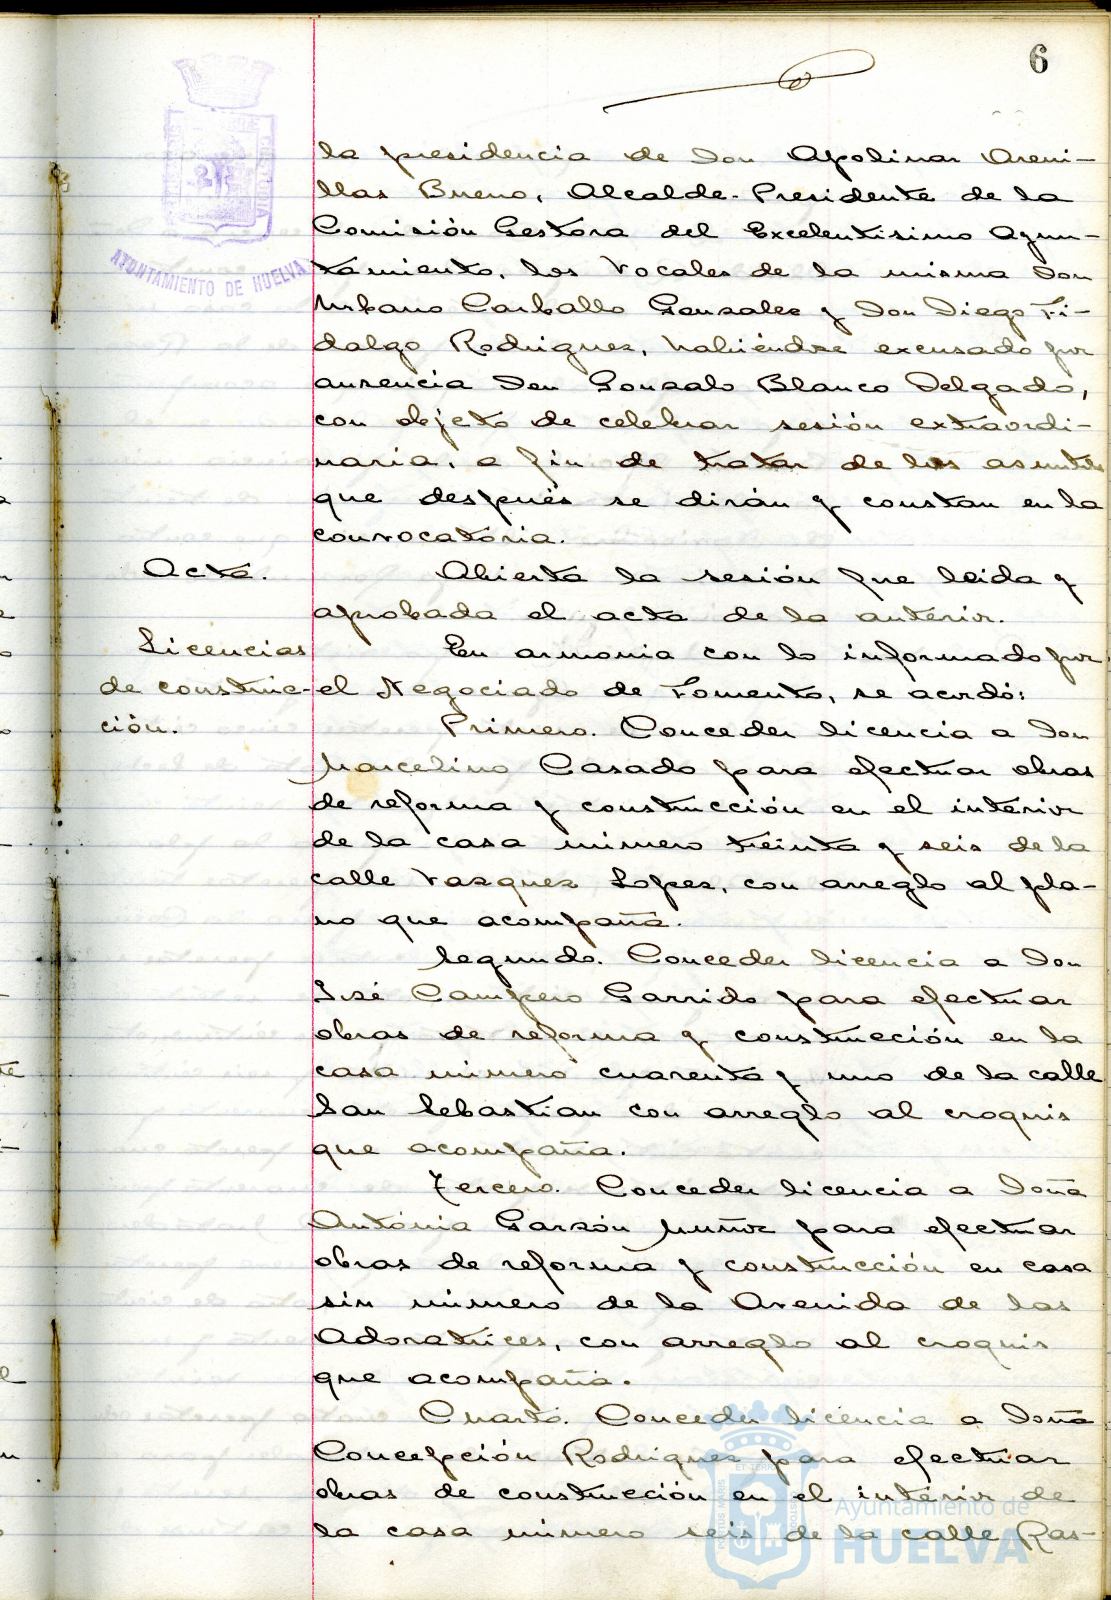 6
AYUNTAMIENTO DE HUELVA
la presidencia de Don Apolinar Areni-
llas Bueno, Alcalde-Presidente de la
Comisión Gestora del Excelentisimo Ayun-
tamiento, los Vocales de la misma Don
Urbano Carballo Gonzalez y Don Diego Fi-
dalgo Rodriguez, habiéndose excusado por
ausencia Don Gonzalo Blanco Delgado,
con objeto de celebrar sesión extraordi-
naria, a fin de tratar de los asuntos
que después se dirán y constan en la
convocatoria.
Acta.
Abierta la sesión fue leida y
aprobada el acta de la anterior.
Licencias
de construc-
ción.
En armonia con lo informado por
el Negociado de Fomento, se acordó:
Primero. Conceder licencia a Don
Marcelino Casado para efectuar obras
de reforma y construcción en el interior
de la casa número treinta y seis de la
calle Vazquez Lopez, con arreglo al pla-
no que acompaña.
Segundo. Conceder licencia a Don
José Campero Garrido para efectuar
obras de reforma y construcción en la
casa número cuarenta y uno de la calle
San Sebastian con arreglo al croquis
que acompaña.
Tercero. Conceder licencia a Doña
Antónia Garzón Muñoz para efectuar
obras de reforma y construcción en casa
sin número de la Avenida de las
Adoratrices, con arreglo al croquis
que acompaña.
Cuarto. Conceder licencia a Doña
Concepción Rodriguez para efectuar
obras de construcción en el interior de
la casa número seis de la calle Ras-
Ayuntamiento de
HUELVA